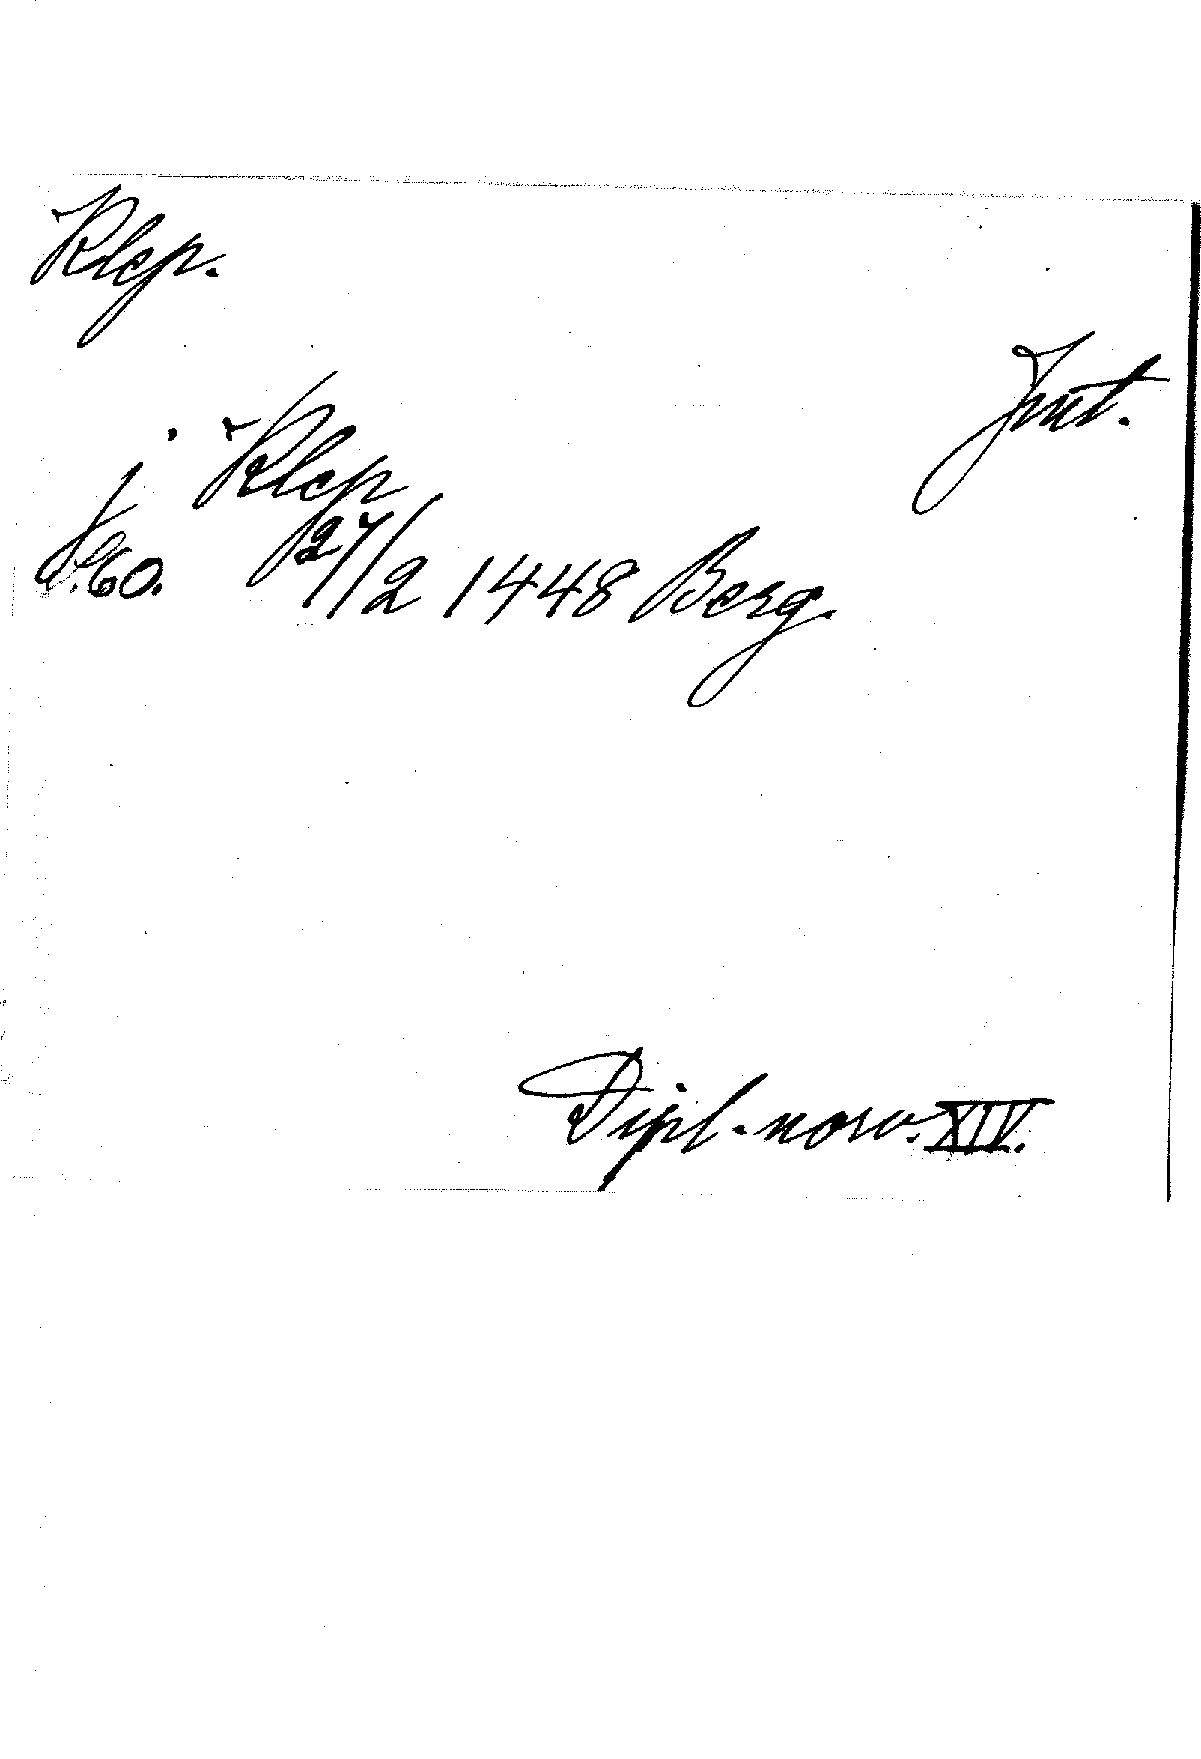 Klep.
Jnt.
j Klep
S.60. 27/2 1448 Berg.
Dipl. norv. XIV.